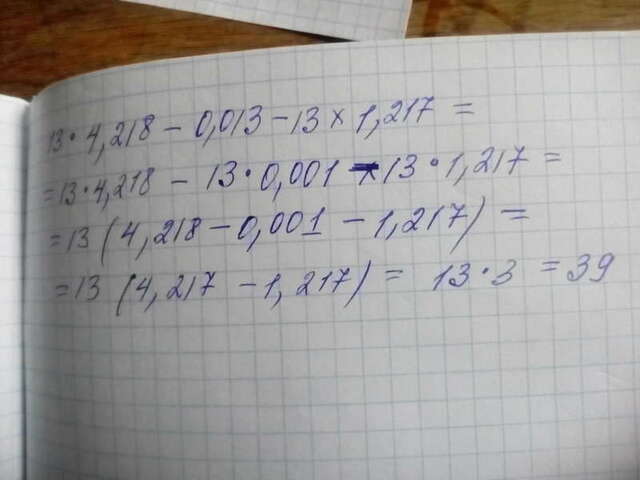 13·4,218 - 0,013 - 13 × 1,217 =
= 13·4,218 - 13·0,001 - 13·1,217 =
= 13 (4,218 - 0,001 - 1,217) =
= 13 (4,217 - 1,217) = 13·3 = 39